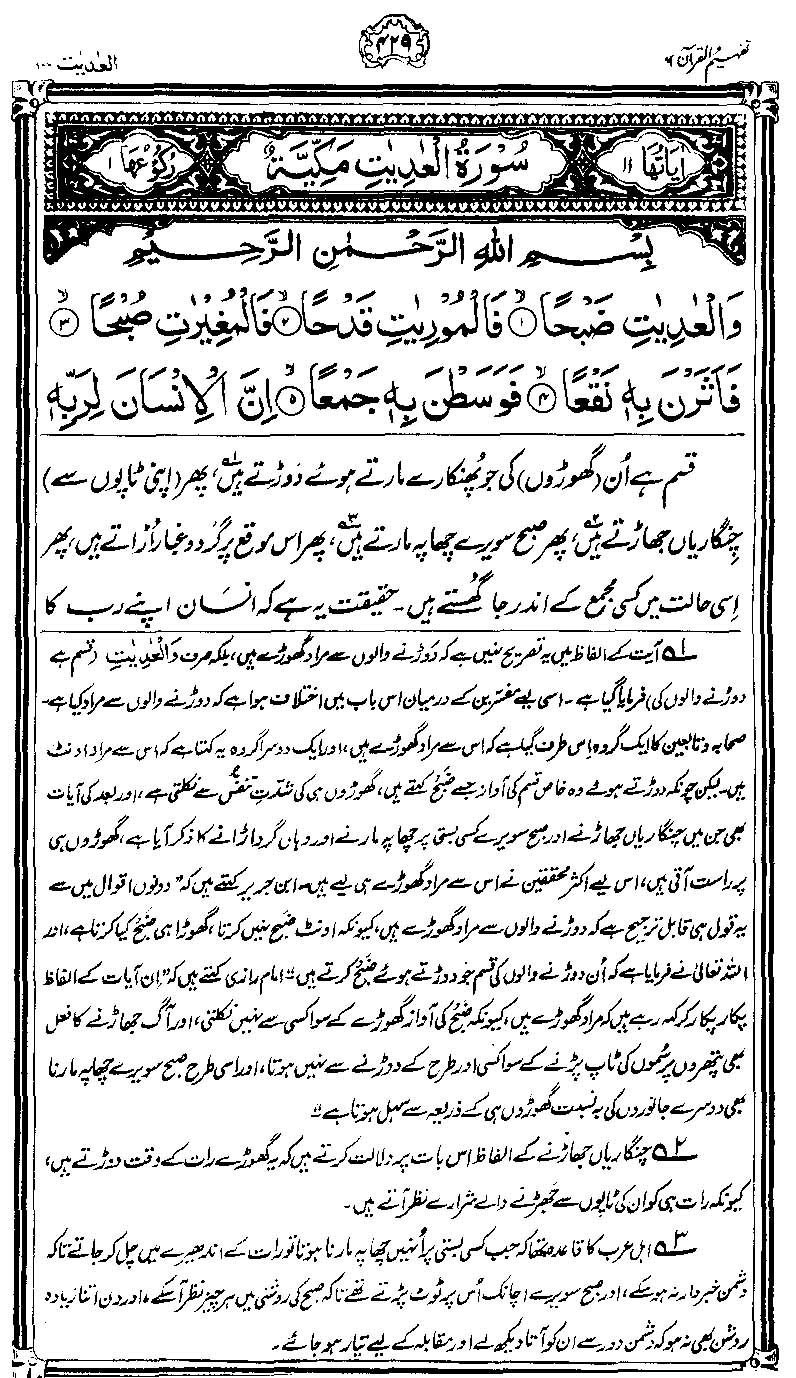 تفہیم القرآن ۶
۴۲۹
العٰدیٰت ۱۰۰
اٰیَاتُهَا ۱۱
سُوْرَةُ الْعٰدِیٰتِ مَكِّیَّةٌ
رُكُوْعُهَا ۱
بِسْمِ اللّٰهِ الرَّحْمٰنِ الرَّحِیْمِ
وَالْعٰدِیٰتِ ضَبْحًا ۙ﴿۱﴾ فَالْمُوْرِیٰتِ قَدْحًا ۙ﴿۲﴾ فَالْمُغِیْرٰتِ صُبْحًا ۙ﴿۳﴾
فَاَثَرْنَ بِهٖ نَقْعًا ۙ﴿۴﴾ فَوَسَطْنَ بِهٖ جَمْعًا ۙ﴿۵﴾ اِنَّ الْاِنْسَانَ لِرَبِّهٖ
قسم ہے اُن (گھوڑوں) کی جو پھنکارے مارتے ہوئے دَوڑتے ہیں۱؎، پھر (اپنی ٹاپوں سے)
چنگاریاں جھاڑتے ہیں۲؎، پھر صبح سویرے چھاپہ مارتے ہیں۳؎، پھر اس موقع پر گرد و غبار اُڑاتے ہیں، پھر
اِسی حالت میں کسی مجمع کے اندر جا گھُستے ہیں۔ حقیقت یہ ہے کہ انسان اپنے رب کا
۱؎ آیت کے الفاظ میں یہ تصریح نہیں ہے کہ دَوڑنے والوں سے مراد گھوڑے ہیں، بلکہ صرف وَالْعٰدِیٰتِ (قسم ہے
دوڑنے والوں کی) فرمایا گیا ہے۔ اسی لیے مفسّرین کے درمیان اس باب میں اختلاف ہوا ہے کہ دوڑنے والوں سے مراد کیا ہے۔
صحابہ و تابعین کا ایک گروہ اِس طرف گیا ہے کہ اس سے مراد گھوڑے ہیں، اور ایک دوسرا گروہ یہ کہتا ہے کہ اس سے مراد اونٹ
ہیں۔ لیکن چونکہ دوڑتے ہوئے وہ خاص قسم کی آواز جسے ضَبْح کہتے ہیں، گھوڑوں ہی کی شدّتِ تنفّس سے نکلتی ہے، اور بعد کی آیات
بھی جن میں چنگاریاں جھاڑنے اور صبح سویرے کسی بستی پر چھاپہ مارنے اور وہاں گرد اڑانے کا ذکر آیا ہے، گھوڑوں ہی
پر راست آتی ہیں، اس لیے اکثر محققین نے اس سے مراد گھوڑے ہی لیے ہیں۔ ابن جریر کہتے ہیں کہ ”دونوں اقوال میں سے
یہ قول ہی قابلِ ترجیح ہے کہ دوڑنے والوں سے مراد گھوڑے ہیں، کیونکہ اونٹ ضبح نہیں کرتا، گھوڑا ہی ضبح کیا کرتا ہے، اور
اللہ تعالیٰ نے فرمایا ہے کہ اُن دوڑنے والوں کی قسم جو دوڑتے ہوئے ضبح کرتے ہیں“ امام رازی کہتے ہیں کہ ”اِن آیات کے الفاظ
پکار پکار کر کہہ رہے ہیں کہ مراد گھوڑے ہیں، کیونکہ ضبح کی آواز گھوڑے کے سوا کسی سے نہیں نکلتی، اور آگ جھاڑنے کا فعل
بھی پتھروں پر سُموں کی ٹاپ پڑنے کے سوا کسی اور طرح کے دوڑنے سے نہیں ہوتا، اور اسی طرح صبح سویرے چھاپہ مارنا
بھی دوسرے جانوروں کی بہ نسبت گھوڑوں ہی کے ذریعہ سے سہل ہوتا ہے“
۲؎ چنگاریاں جھاڑنے کے الفاظ اس بات پر دلالت کرتے ہیں کہ یہ گھوڑے رات کے وقت دوڑتے ہیں،
کیونکہ رات ہی کو ان کی ٹاپوں سے جھڑنے والے شرارے نظر آتے ہیں۔
۳؎ اہل عرب کا قاعدہ تھا کہ جب کسی بستی پر اُنہیں چھاپہ مارنا ہوتا تو رات کے اندھیرے میں چل کر جاتے تاکہ
دشمن خبردار نہ ہو سکے، اور صبح سویرے اچانک اُس پر ٹوٹ پڑتے تھے تاکہ صبح کی روشنی میں ہر چیز نظر آسکے، اور دن اتنا زیادہ
روشن بھی نہ ہو کہ دشمن دور سے ان کو آتا دیکھ لے اور مقابلہ کے لیے تیار ہو جائے۔